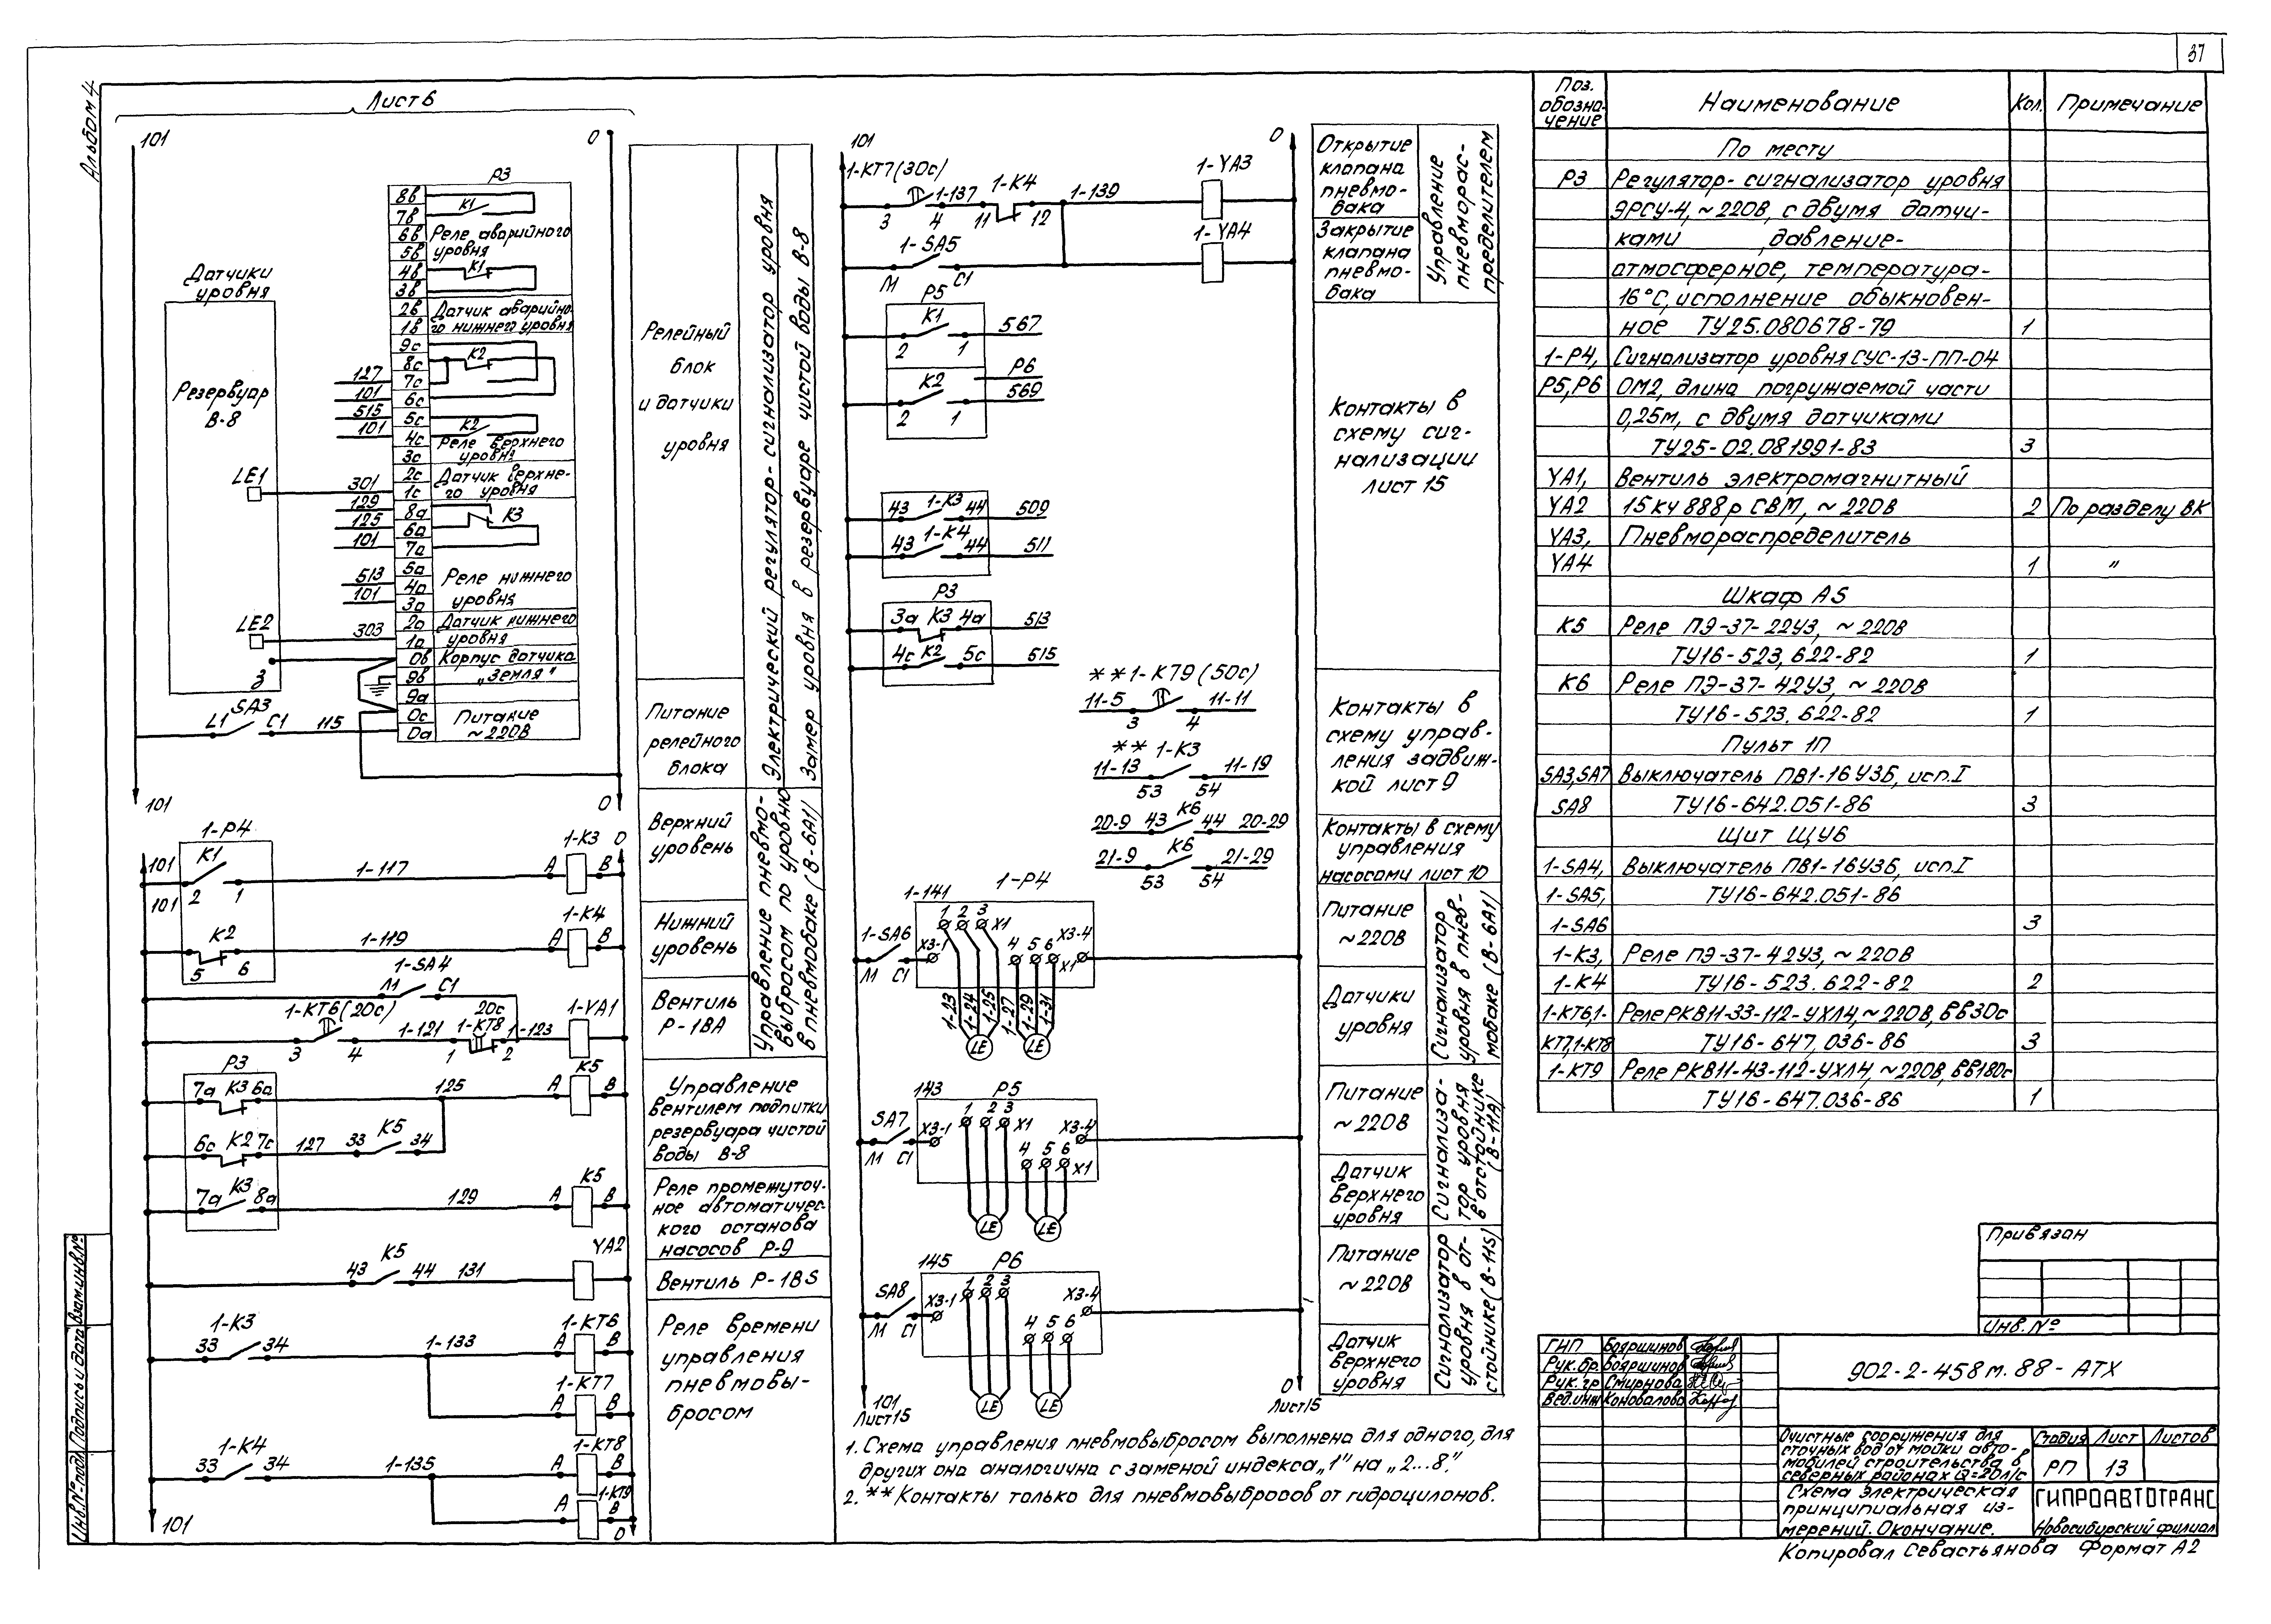 37
Альбом 4
Лист 6
101
0
Датчики
уровня
Резервуар
В-8
LE1
LE2
З
P3
8в
7в
6в
5в
4в
3в
2в
1в
9с
8с
7с
6с
5с
4с
3с
2с
1с
8а
6а
7а
5а
4а
3а
2а
1а
0в
9в
9а
0с
0а
К1
Реле аварийного
уровня
К1
Датчик аварийно-
го нижнего уровня
К2
К2
Реле верхнего
уровня
Датчик верхне-
го уровня
К3
Реле нижнего
уровня
Датчик нижнего
уровня
Корпус датчика
„Земля"
Питание
~220В
127
101
515
101
301
129
125
101
513
101
303
SA3
L1 С1 115
101
0
Релейный
блок
и датчики
уровня
Питание
релейного
блока
Электрический регулятор-сигнализатор уровня
Замер уровня в резервуаре чистой воды В-8
1-Р4
101 К1
2 1
1-117
А 1-К3 В
0
101
К2
5 6
1-119
А 1-К4 В
1-SA4
Л1 С1
1-КТ6(20с)
3 4
1-121
20с
1-КТ8
1 2
1-123
1-YA1
Р3
7а К3 6а
125
А К5 В
6с К2 7с
127 33 К5 34
7а К3 8а
129
А К5 В
43 К5 44 131
YA2
1-К3
33 34
1-133
1-КТ6
А В
1-КТ7
А В
1-К4
33 34
1-135
1-КТ8
А В
1-КТ9
А В
101
0
Верхний
уровень
Нижний
уровень
Вентиль
Р-18А
Управление пневмо-
выбросом по уровню
в пневмобаке (В-6А1)
Управление
вентилем подпитки
резервуара чистой
воды В-8
Реле промежуточ-
ное автоматичес-
кого останова
насосов Р-9
Вентиль Р-18S
Реле времени
управления
пневмовы-
бросом
101
0
1-КТ7(30с)
3 4
1-137
1-К4
11 12
1-139
1-YA3
1-SA5
Л1 С1
1-YA4
Р5
К1
2 1
567
Р6
К2
2 1
569
43 1-К3 44 509
43 1-К4 44 511
Р3
3а К3 4а 513
4с К2 5с 515
**1-КТ9(50с)
11-5 11-11
3 4
** 1-К3
11-13 11-19
53 54
20-9 43 К6 44 20-29
21-9 К6 21-29
53 54
1-141
1-Р4
1-SA6
Л1 С1
Х3-1
1 2 3 Х1
4 5 6 Х1
Х3-4
1-23
1-24
1-25
1-27
1-29
1-31
LE LE
143
Р5
SA7
Л1 С1
Х3-1
1 2 3 Х1
4 5 6 Х1
Х3-4
LE LE
145
Р6
SA8
Л1 С1
Х3-1
1 2 3
4 5 6
Х3-4
LE LE
101
Лист15
0
Лист15
Открытие
клапана
пневмо-
бака
Закрытие
клапана
пневмо-
бака
Управление
пневморас-
пределителем
Контакты в
схему сиг-
нализации
лист 15
Контакты в
схему управ-
ления задвиж-
кой лист 9
Контакты в схему
управления
насосами лист 10
Питание
~220В
Датчики
уровня
Сигнализатор
уровня в пнев-
мобаке (В-6А1)
Питание
~220В
Датчик
верхнего
уровня
Сигнализа-
тор уровня
в отстойнике
(В-11А)
Питание
~220В
Датчик
верхнего
уровня
Сигнализатор
уровня в от-
стойнике(В-11S)
1. Схема управления пневмовыбросом выполнена для одного, для
других она аналогична с заменой индекса „1" на „2...8".
2. ** Контакты только для пневмовыбросов от гидроциклонов.
Поз. обозна-чение Наименование Кол. Примечание
По месту
Р3 Регулятор-сигнализатор уровня
ЭРСУ-4, ~220В, с двумя датчи-
ками , давление-
атмосферное, температура-
16°С, исполнение обыкновен-
ное ТУ25.080678-79 1
1-Р4, Сигнализатор уровня СУС-13-ПП-04
Р5, Р6 ОМ2, длина погружаемой части
0,25м, с двумя датчиками
ТУ25-02.081991-83 3
YA1, Вентиль электромагнитный
YA2 15кч 888р СВМ, ~220В 2 По разделу ВК
YA3, Пневмораспределитель
YA4 1 "
Шкаф А5
К5 Реле ПЭ-37-22У3, ~220В
ТУ16-523,622-82 1
К6 Реле ПЭ-37-42У3, ~220В
ТУ16-523.622-82 1
Пульт 1П
SA3,SA7 Выключатель ПВ1-16У3Б, исп.I
SA8 ТУ16-642.051-86 3
Щит ЩУ6
1-SA4, Выключатель ПВ1-16У3Б, исп.I
1-SA5, ТУ16-642.051-86
1-SA6 3
1-К3, Реле ПЭ-37-42У3, ~220В
1-К4 ТУ16-523.622-82 2
1-КТ6,1- Реле РКВ11-33-112-УХЛ4, ~220В, ВВ30с
КТ7,1-КТ8 ТУ16-647,036-86 3
1-КТ9 Реле РКВ11-43-112-УХЛ4, ~220В, ВВ180с
ТУ16-647.036-86 1
Привязан
Инв.№
ГИП Бояршинов
Рук.бр. Бояршинов
Рук.гр Смирнова
Вед.инж Коновалова
902-2-458м.88-АТХ
Очистные сооружения для
сточных вод от мойки авто-
мобилей строительства в
северных районах Q=20л/с
Стадия Лист Листов
РП 13
Схема электрическая
принципиальная из-
мерений. Окончание.
ГИПРОАВТОТРАНС
Новосибирский филиал
Копировал Севастьянова Формат А2
Инв.№подл. Подпись и дата Взам.инв.№